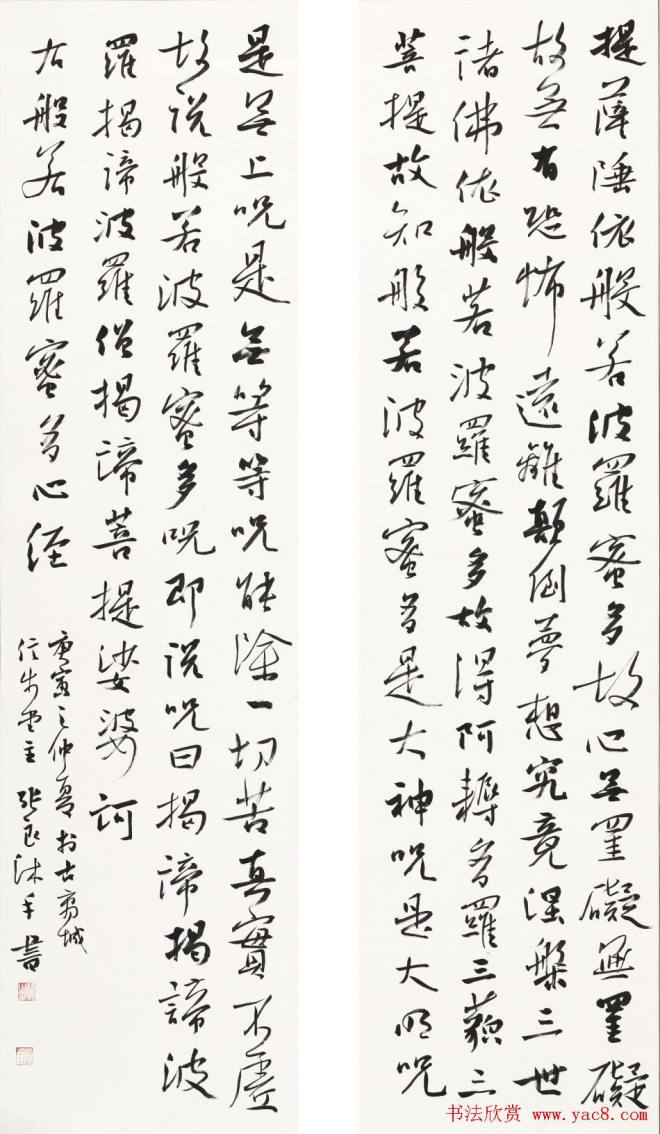 提薩埵依般若波羅蜜多故心无罣礙無罣礙
故無有恐怖遠離顛倒夢想究竟涅槃三世
諸佛依般若波羅蜜多故得阿耨多羅三藐三
菩提故知般若波羅蜜多是大神咒是大明咒
是无上咒是无等等咒能除一切苦真實不虛
故说般若波羅蜜多咒即说咒曰揭諦揭諦波
羅揭諦波羅僧揭諦菩提娑婆訶
右般若波羅蜜多心经
庚寅之仲夏於古城
堂主張良沐手書
书法欣赏 www.yac8.com